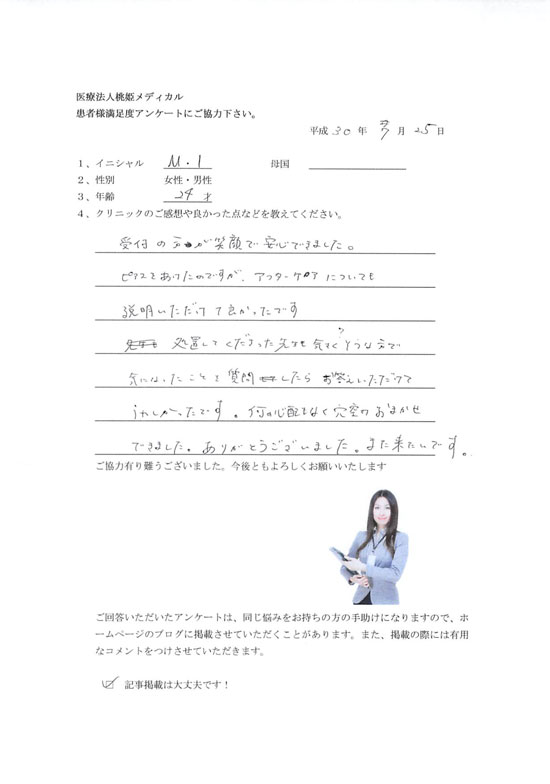 医療法人桃姫メディカル
患者様満足度アンケートにご協力下さい。
平成 30 年 7 月 25 日
1、イニシャル M・I 母国
2、性別 女性・男性
3、年齢 24 才
4、クリニックのご感想や良かった点などを教えてください。
受付の方が笑顔で安心できました。
ピアスをあけたのですが、アフターケアについても
説明いただけて良かったです
処置してくださった先生も気さくそうな方で
気になったことを質問したらお答えいただけて
うれしかったです。何の心配もなく穴空けおまかせ
できました。ありがとうございました。また来たいです。
ご協力有り難うございました。今後ともよろしくお願いいたします
ご回答いただいたアンケートは、同じ悩みをお持ちの方の手助けになりますので、ホ
ームページのブログに掲載させていただくことがあります。また、掲載の際には有用
なコメントをつけさせていただきます。
記事掲載は大丈夫です！